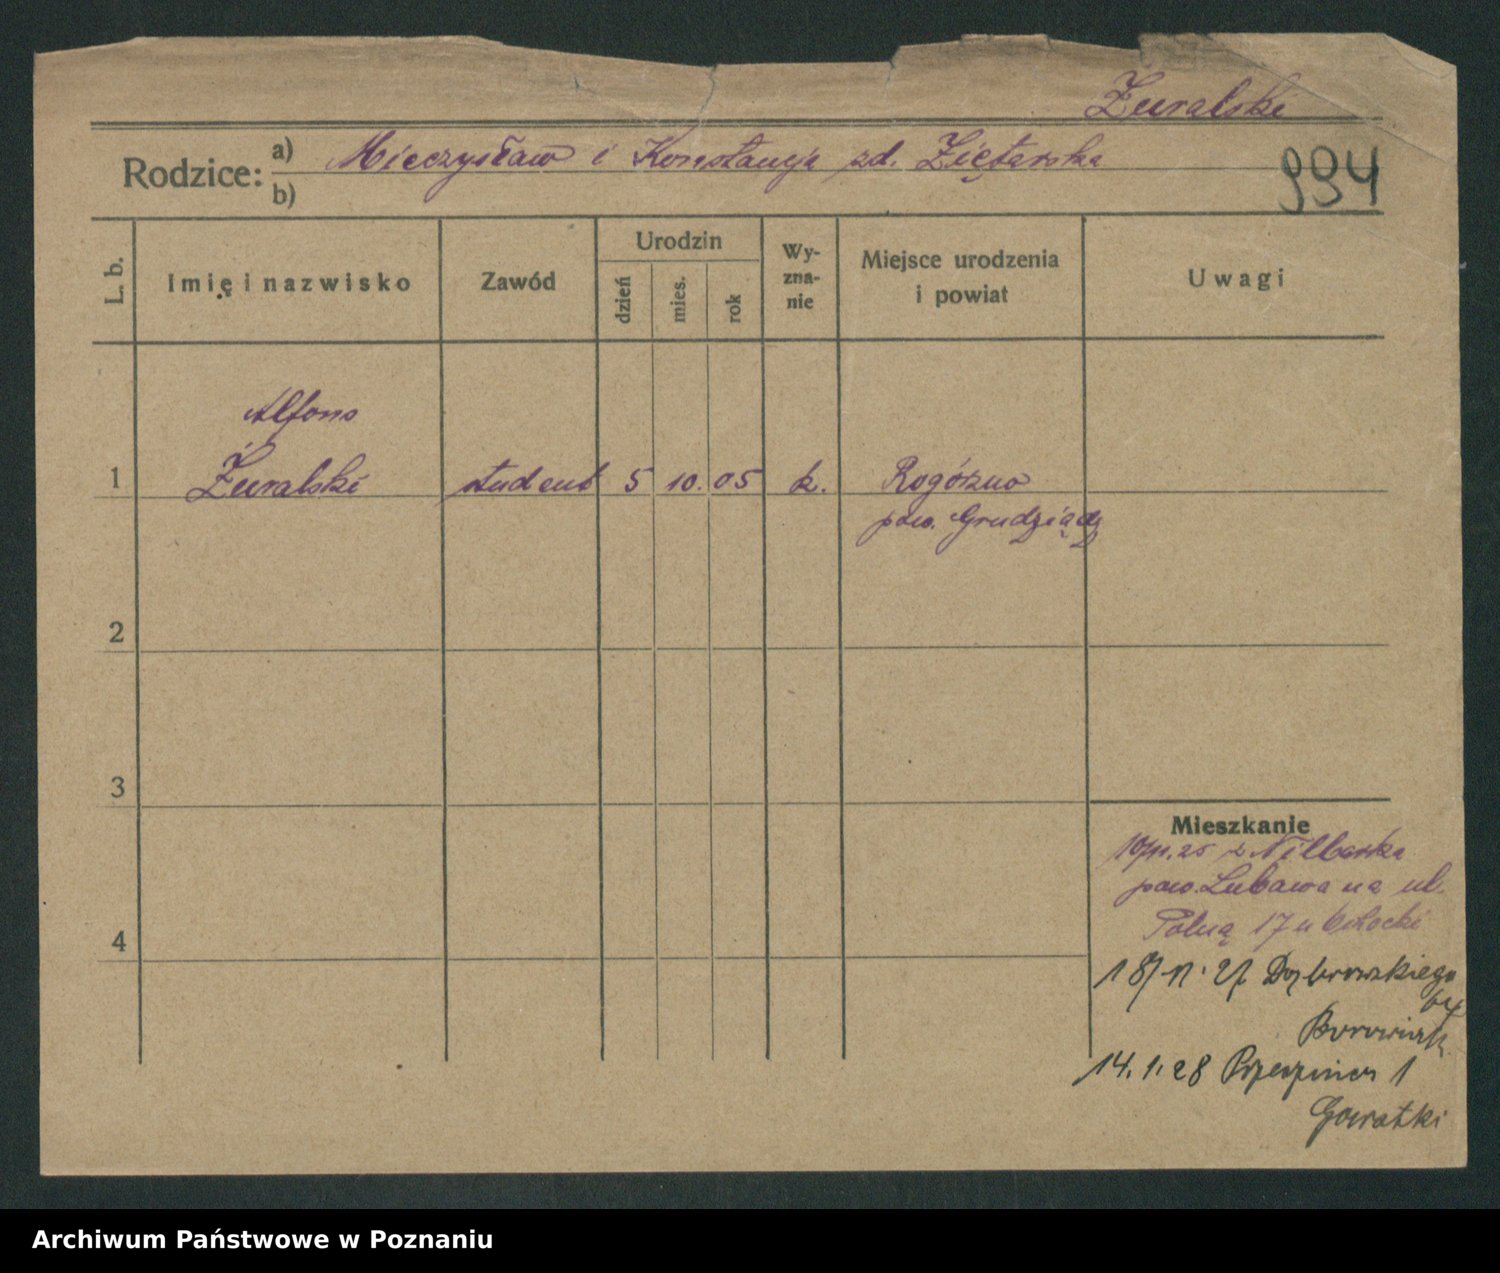 Żuralski
Rodzice: a) Mieczysław i Konstancja zd. Ziętarska
b)
994
L. b. Imię i nazwisko Zawód Urodzin dzień mies. rok Wy-zna-nie Miejsce urodzenia i powiat Uwagi
Alfons
1 Żuralski student 5 10. 05 k. Rogóźno
pow. Grudziądz
2
3
4
Mieszkanie
10/11.25 z
pow. Lubawa na ul.
Polną 17 u
18/11.27 Dąbrowskiego
14.1.28 1
Archiwum Państwowe w Poznaniu